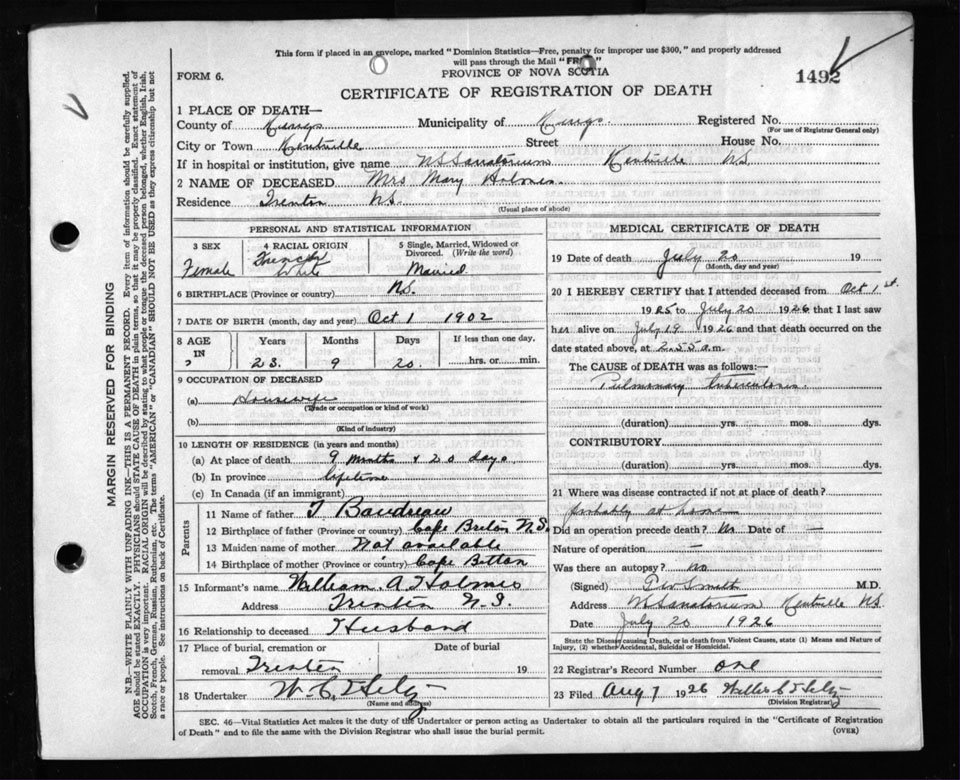 This form if placed in an envelope, marked "Dominion Statistics—Free, penalty for improper use $300," and properly addressed
will pass through the Mail "FREE"
FORM 6.
PROVINCE OF NOVA SCOTIA
1492
CERTIFICATE OF REGISTRATION OF DEATH
1 PLACE OF DEATH—
County of Kings Municipality of Kings Registered No.
(For use of Registrar General only)
City or Town Kentville Street House No.
If in hospital or institution, give name NS Sanatorium Kentville NS
2 NAME OF DECEASED Mrs Mary Holmes
Residence Trenton NS.
(Usual place of abode)
PERSONAL AND STATISTICAL INFORMATION
3 SEX 4 RACIAL ORIGIN 5 Single, Married, Widowed or
Divorced. (Write the word)
Female French White Married
6 BIRTHPLACE (Province or country) NS.
7 DATE OF BIRTH (month, day and year) Oct 1 1902
8 AGE IN Years Months Days If less than one day,
23. 9 20. hrs. or min.
9 OCCUPATION OF DECEASED
(a) Housewife
(Trade or occupation or kind of work)
(b)
(Kind of industry)
10 LENGTH OF RESIDENCE (in years and months)
(a) At place of death 9 months + 20 days
(b) In province lifetime
(c) In Canada (if an immigrant)
Parents
11 Name of father T Baudreau
12 Birthplace of father (Province or country) Cape Breton N.S.
13 Maiden name of mother Not available
14 Birthplace of mother (Province or country) Cape Bitton
15 Informant's name William A Holmes
Address Trenton N.S.
16 Relationship to deceased Husband
17 Place of burial, cremation or Date of burial
removal Trenton 19
18 Undertaker
(Name and address)
MEDICAL CERTIFICATE OF DEATH
19 Date of death July 20 19
(Month, day and year)
20 I HEREBY CERTIFY that I attended deceased from Oct 1st.
1925 to July 20 1926 that I last saw
her alive on July 19 1926 and that death occurred on the
date stated above, at 2.55 a.m.
The CAUSE OF DEATH was as follows:—
Pulmonary tuberculosis.
(duration) yrs. mos. dys.
CONTRIBUTORY.
(duration) yrs. mos. dys.
21 Where was disease contracted if not at place of death?
probably at home
Did an operation precede death? No Date of —
Nature of operation —
Was there an autopsy? no
(Signed) Smith M.D.
Address NS Sanatorium Kentville NS.
Date July 20 1926
State the Disease causing Death, or in death from Violent Causes, state (1) Means and Nature of
Injury, (2) whether Accidental, Suicidal or Homicidal.
22 Registrar's Record Number one
23 Filed Aug 7 1926
(Division Registrar)
SEC. 46—Vital Statistics Act makes it the duty of the Undertaker or person acting as Undertaker to obtain all the particulars required in the "Certificate of Registration
of Death" and to file the same with the Division Registrar who shall issue the burial permit. (OVER)
MARGIN RESERVED FOR BINDING
N.B.—WRITE PLAINLY WITH UNFADING INK—THIS IS A PERMANENT RECORD. Every item of information should be carefully supplied.
AGE should be stated EXACTLY. PHYSICIANS should STATE CAUSE OF DEATH in plain terms, so that it may be properly classified. Exact statement of
OCCUPATION is very important. RACIAL ORIGIN will be described by stating to what people or tongue the deceased person belonged, whether English, Irish,
Scotch, French, German, Russian, Ruthenian, etc. The terms "AMERICAN" or "CANADIAN" SHOULD NOT BE USED as they express citizenship but not
a race or people. See instructions on back of Certificate.